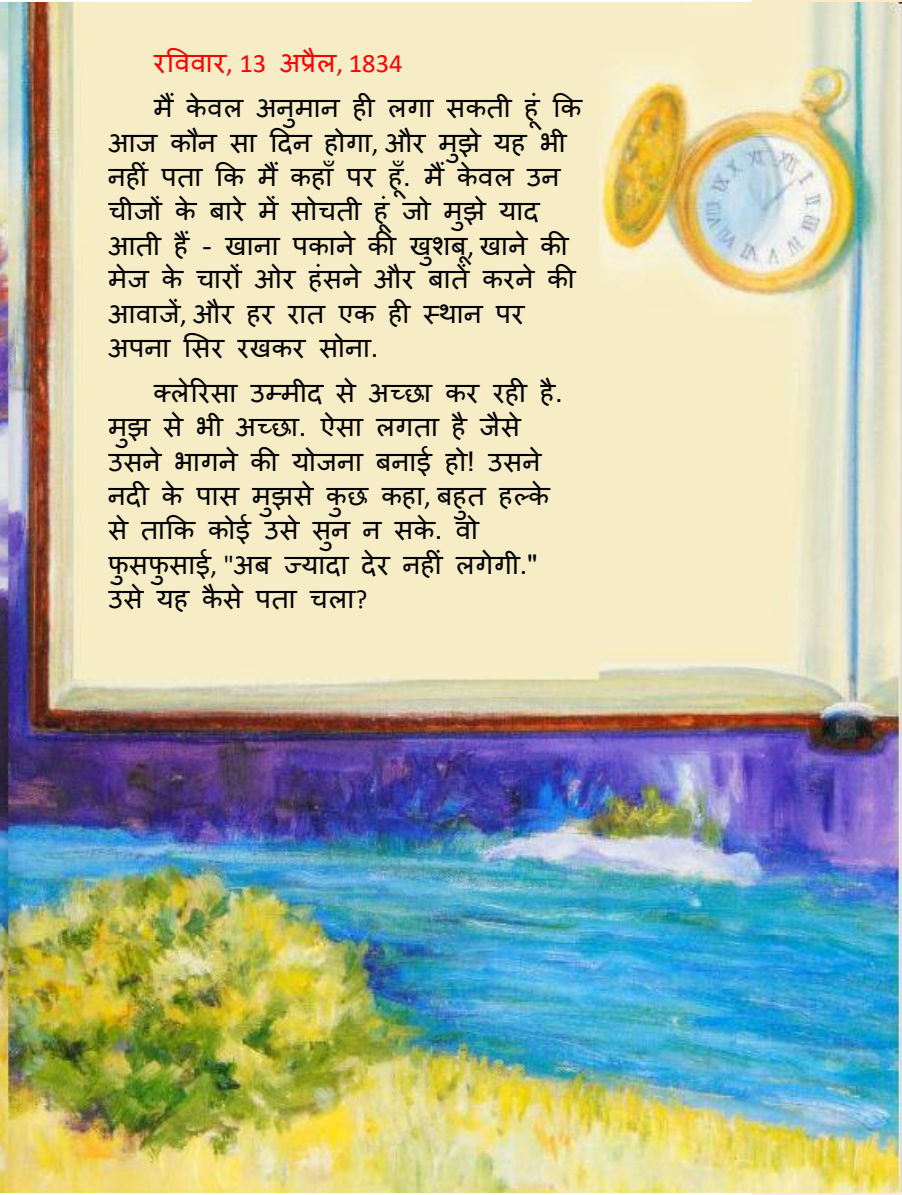 रविवार, 13 अप्रैल, 1834
मैं केवल अनुमान ही लगा सकती हूं कि
आज कौन सा दिन होगा, और मुझे यह भी
नहीं पता कि मैं कहाँ पर हूँ. मैं केवल उन
चीजों के बारे में सोचती हूं जो मुझे याद
आती हैं - खाना पकाने की खुशबू, खाने की
मेज के चारों ओर हंसने और बातें करने की
आवाजें, और हर रात एक ही स्थान पर
अपना सिर रखकर सोना.
क्लेरिसा उम्मीद से अच्छा कर रही है.
मुझ से भी अच्छा. ऐसा लगता है जैसे
उसने भागने की योजना बनाई हो! उसने
नदी के पास मुझसे कुछ कहा, बहुत हल्के
से ताकि कोई उसे सुन न सके. वो
फुसफुसाई, "अब ज्यादा देर नहीं लगेगी."
उसे यह कैसे पता चला?
XII I II III IIII V VI VII VIII IX X XI